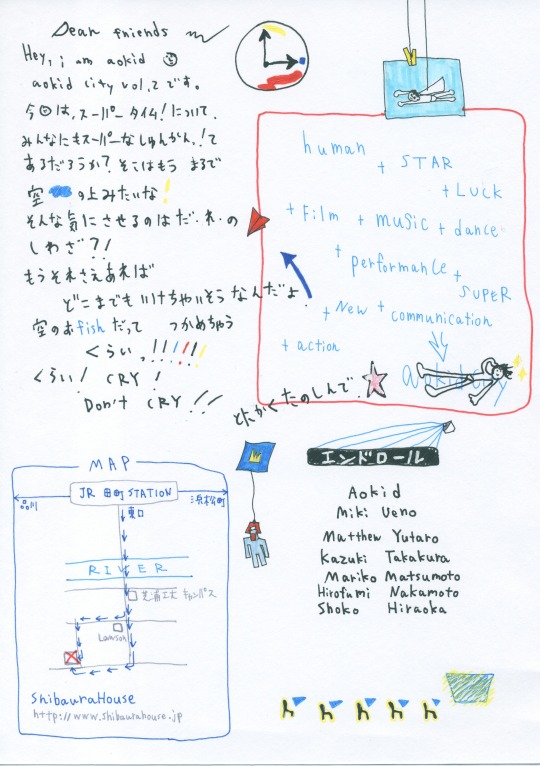 Dear friends
Hey, i am aokid
aokid city vol.2 です。
今日は、スーパータイム!について、
みんなにもスーパーなしゅんかん!って
あるだろうか?そこはもう まるで
空 の上みたいな!
そんな気にさせるのはだ・れ・の
しわざ?!
もうそれさえあれば
どこまでもいけちゃいそうなんだよ
空のお fish だって つかめちゃう
くらい!!!!!!
くらい! CRY!
Don't CRY!!!
とにかくたのしんで.
human
+ STAR
+ LUCK
+ Film + music + dance
+ performance +
SUPER
+ New + communication
+ action
aokid city
MAP
JR 田町 STATION
品川
浜松町
東口
RIVER
芝浦工大 キャンパス
Lawson
ShibauraHouse
http://www.shibaurahouse.jp
エンドロール
Aokid
Miki Ueno
Matthew Yutaro
Kazuki Takakura
Mariko Matsumoto
Hirofumi Nakamoto
Shoko Hiraoka